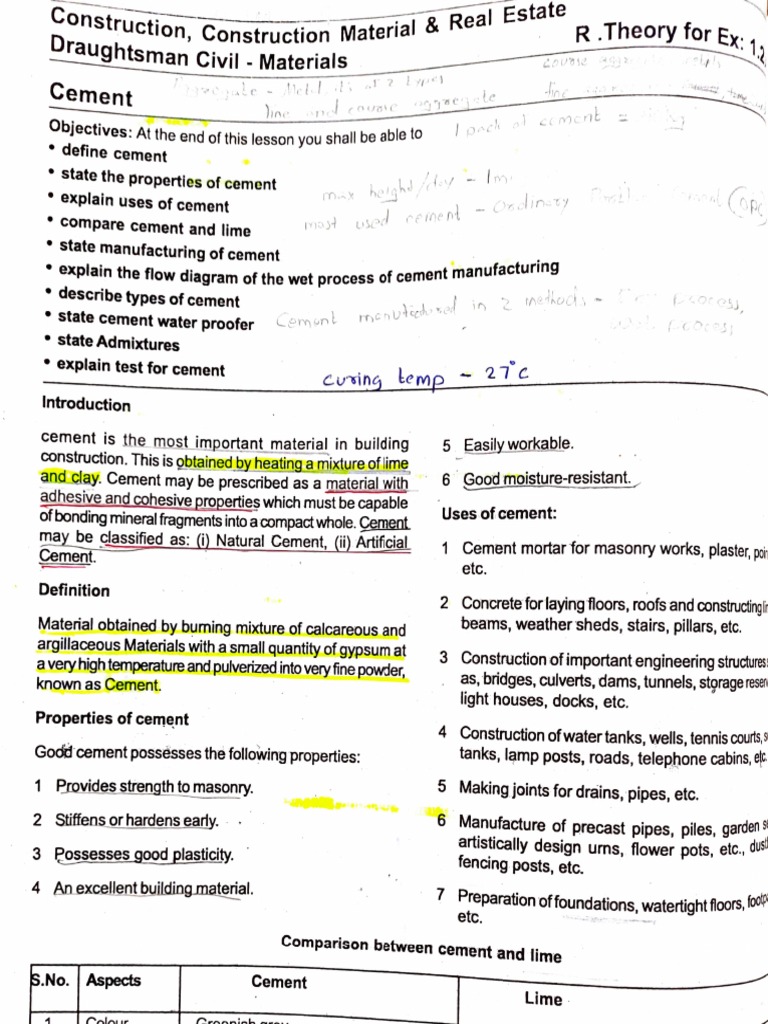 Construction, Construction Material & Real Estate
R .Theory for Ex: 1.2
Draughtsman Civil - Materials
Aggregate -
types
Cement
fine and course aggregate
Objectives: At the end of this lesson you shall be able to
1 pack of cement =
• define cement
• state the properties of cement
max height/day - 1m.
• explain uses of cement
most used cement - Ordinary
(OPC)
• compare cement and lime
• state manufacturing of cement
• explain the flow diagram of the wet process of cement manufacturing
• describe types of cement
Cement manufactured in 2 methods - process,
• state cement water proofer
process
• state Admixtures
• explain test for cement
curing temp - 27°c
Introduction
cement is the most important material in building
construction. This is obtained by heating a mixture of lime
and clay. Cement may be prescribed as a material with
adhesive and cohesive properties which must be capable
of bonding mineral fragments into a compact whole. Cement
may be classified as: (i) Natural Cement, (ii) Artificial
Cement.
Definition
Material obtained by burning mixture of calcareous and
argillaceous Materials with a small quantity of gypsum at
a very high temperature and pulverized into very fine powder,
known as Cement.
Properties of cement
Good cement possesses the following properties:
1 Provides strength to masonry.
2 Stiffens or hardens early.
3 Possesses good plasticity.
4 An excellent building material.
5 Easily workable.
6 Good moisture-resistant.
Uses of cement:
1 Cement mortar for masonry works, plaster,
etc.
2 Concrete for laying floors, roofs and constructing
beams, weather sheds, stairs, pillars, etc.
3 Construction of important engineering structures
as, bridges, culverts, dams, tunnels, storage
light houses, docks, etc.
4 Construction of water tanks, wells, tennis courts,
tanks, lamp posts, roads, telephone cabins, etc.
5 Making joints for drains, pipes, etc.
6 Manufacture of precast pipes, piles, garden
artistically design urns, flower pots, etc.,
fencing posts, etc.
7 Preparation of foundations, watertight floors,
etc.
Comparison between cement and lime
S.No. Aspects Cement Lime
1 Colour Greenish grey